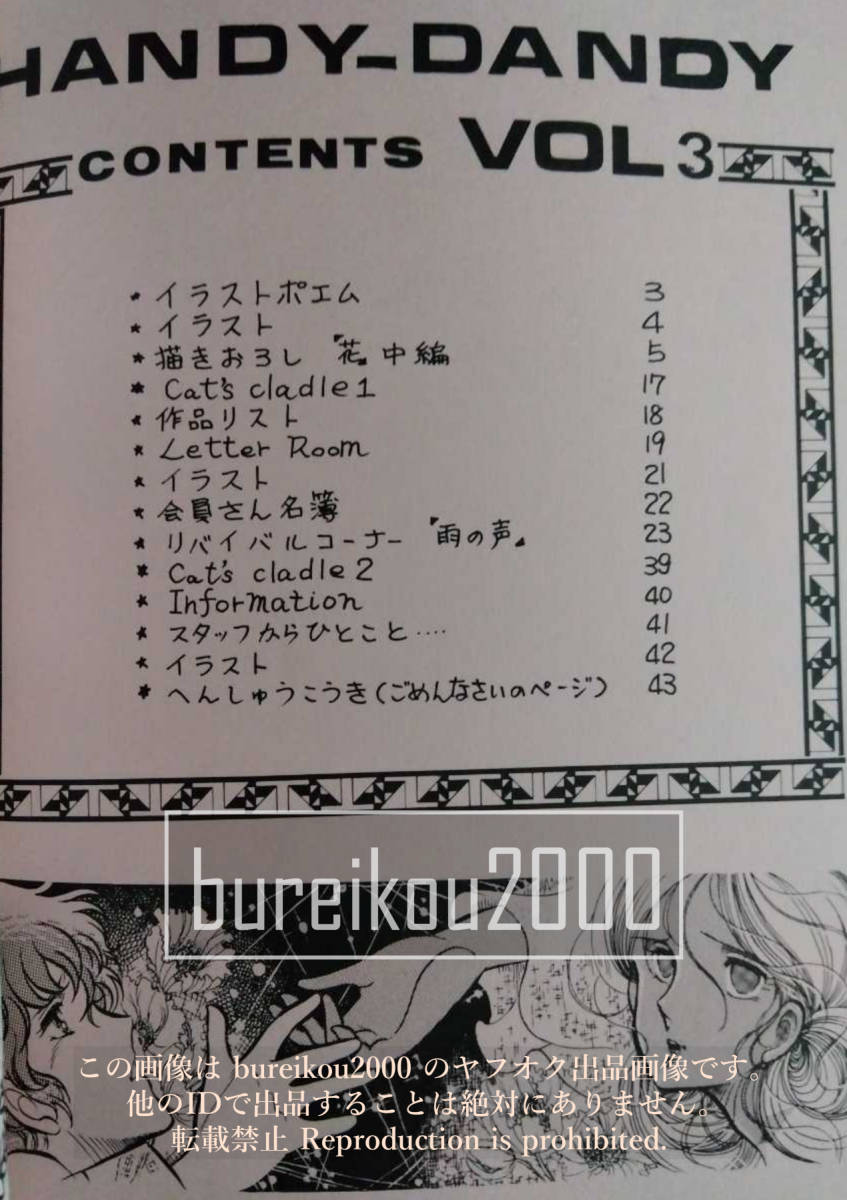 HANDY-DANDY
CONTENTS VOL 3
★ イラストポエム 3
★ イラスト 4
★ 描きおろし『花』中編 5
★ Cat's cladle 1 17
★ 作品リスト 18
★ Letter Room 19
★ イラスト 21
★ 会員さん名簿 22
★ リバイバルコーナー『雨の声』 23
★ Cat's cladle 2 39
★ Information 40
★ スタッフからひとこと‥‥ 41
★ イラスト 42
★ へんしゅうこうき(ごめんなさいのページ) 43
bureikou2000
この画像は bureikou2000 のヤフオク出品画像です。
他のIDで出品することは絶対にありません。
転載禁止 Reproduction is prohibited.